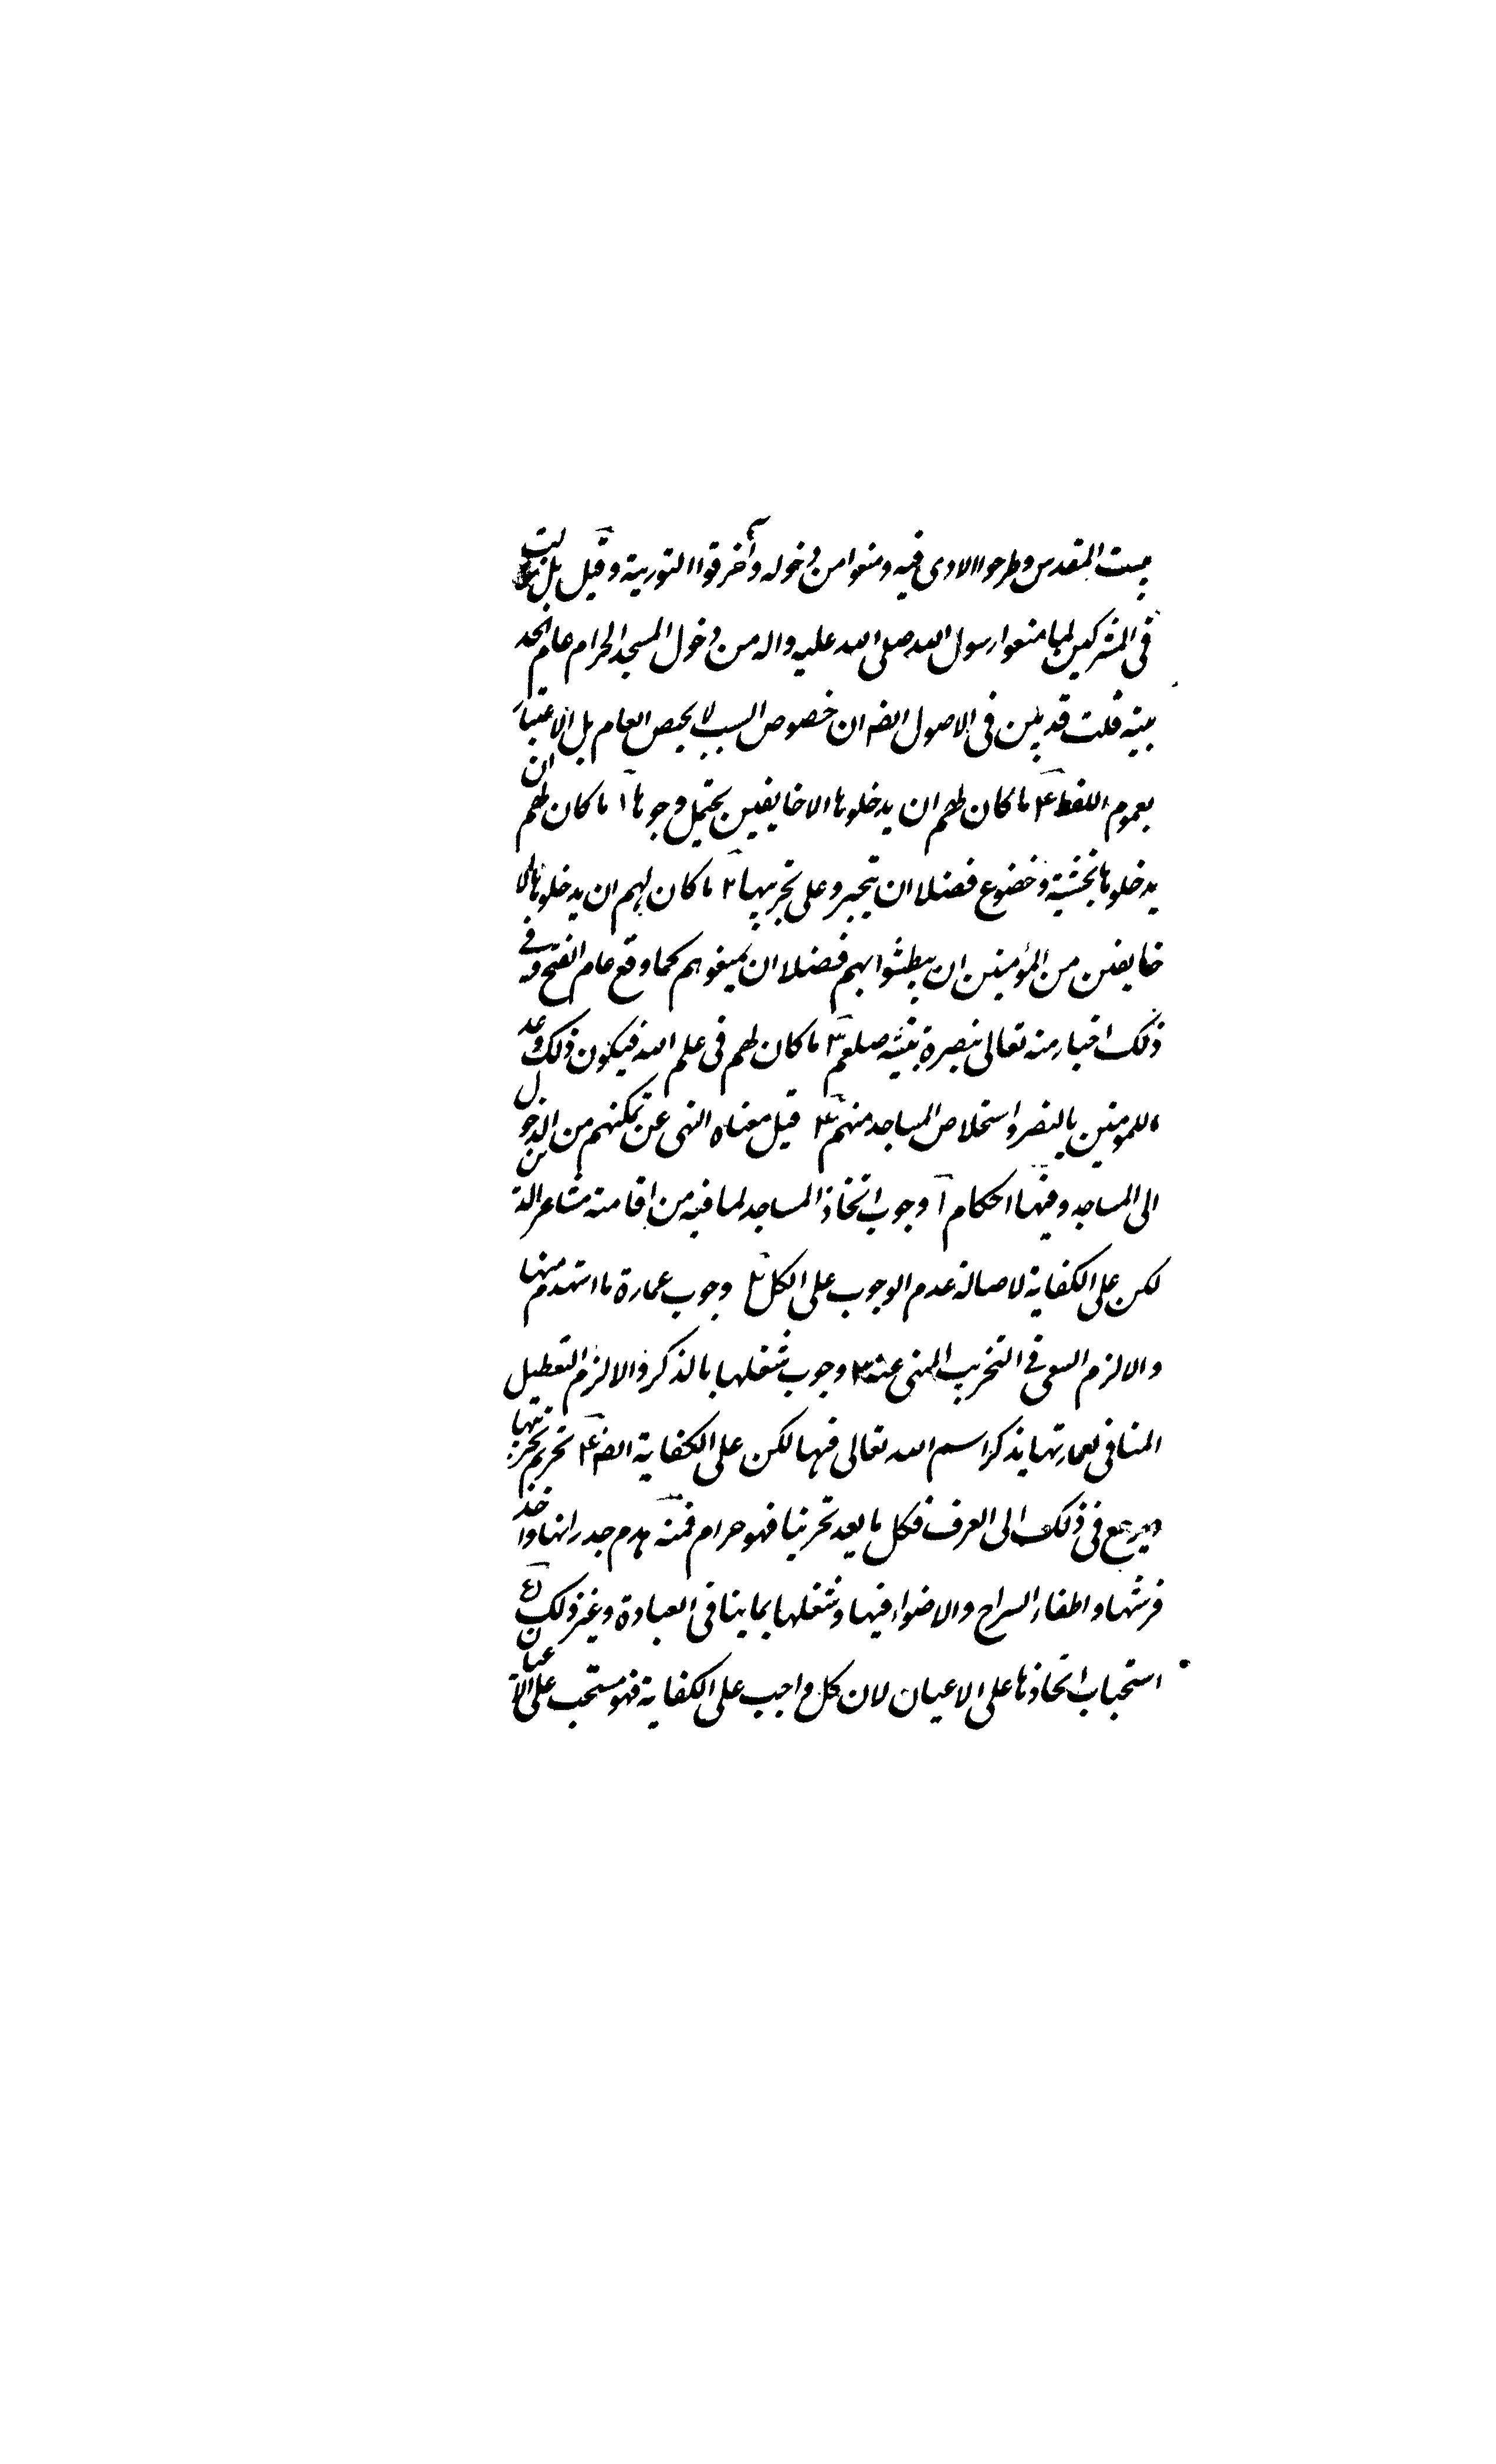 بيت المقدس وطرحوا الاذى فيه ومنعوا من دخوله وأخرقوا التورية وقيل بل نزلت
فى المشركين لما منعوا رسول الله صلى الله عليه واله من دخول المسجد الحرام عام الحد
يبية قلت قد بين فى الاصول ايضه ان خصوص السبب لا يخص العام بل الاعتبار
بعموم اللفظ ۴ ما كان لهم ان يدخلوها الا خايفين يحتمل وجوها ۱ ما كان لهم ان
يدخلوها بخشية وخضوع فضلا ان يتجبروا على تخريبها ۲ ما كان لهم ان يدخلوها الا
خايفين من المؤمنين ان يبطشوا بهم فضلا ان يمنعوهم كما وقع عام الفتح وفى
ذلك اخبار منه تعالى بنصرة نبيه صلعم ۳ ما كان لهم فى علم الله فيكون ذلك وعد
ا للمومنين بالنصر واستخلاص المساجد منهم ۴ قيل معناه النهى عن تمكينهم من الدخول
الى المساجد وفيها احكام آ وجوب اتخاذ المساجد لما فيه من اقامة مشاعر الدين
لكن على الكفاية لاصالة عدم الوجوب على الكل ۲ وجوب عمارة ما استهدم منها
والا لزم السعى فى التخريب المنهى عنه ۳ وجوب شغلها بالذكر والا لزم التعطيل
المنافى لعمارتها بذكر اسم الله تعالى فيها لكن على الكفاية ايضه ۴ تحريم تخريبها
ويرجع فى ذلك الى العرف فكل ما يعد تخريبا فهو حرام فمنه هدم جدرانها واخذ
فرشها واطفاء السراج والاضواء فيها وشغلها بما ينافى العبادة وغير ذلك ۵
استحباب اتخاذها على الاعيان لان كل واجب على الكفاية فهو مستحب على الاعيان